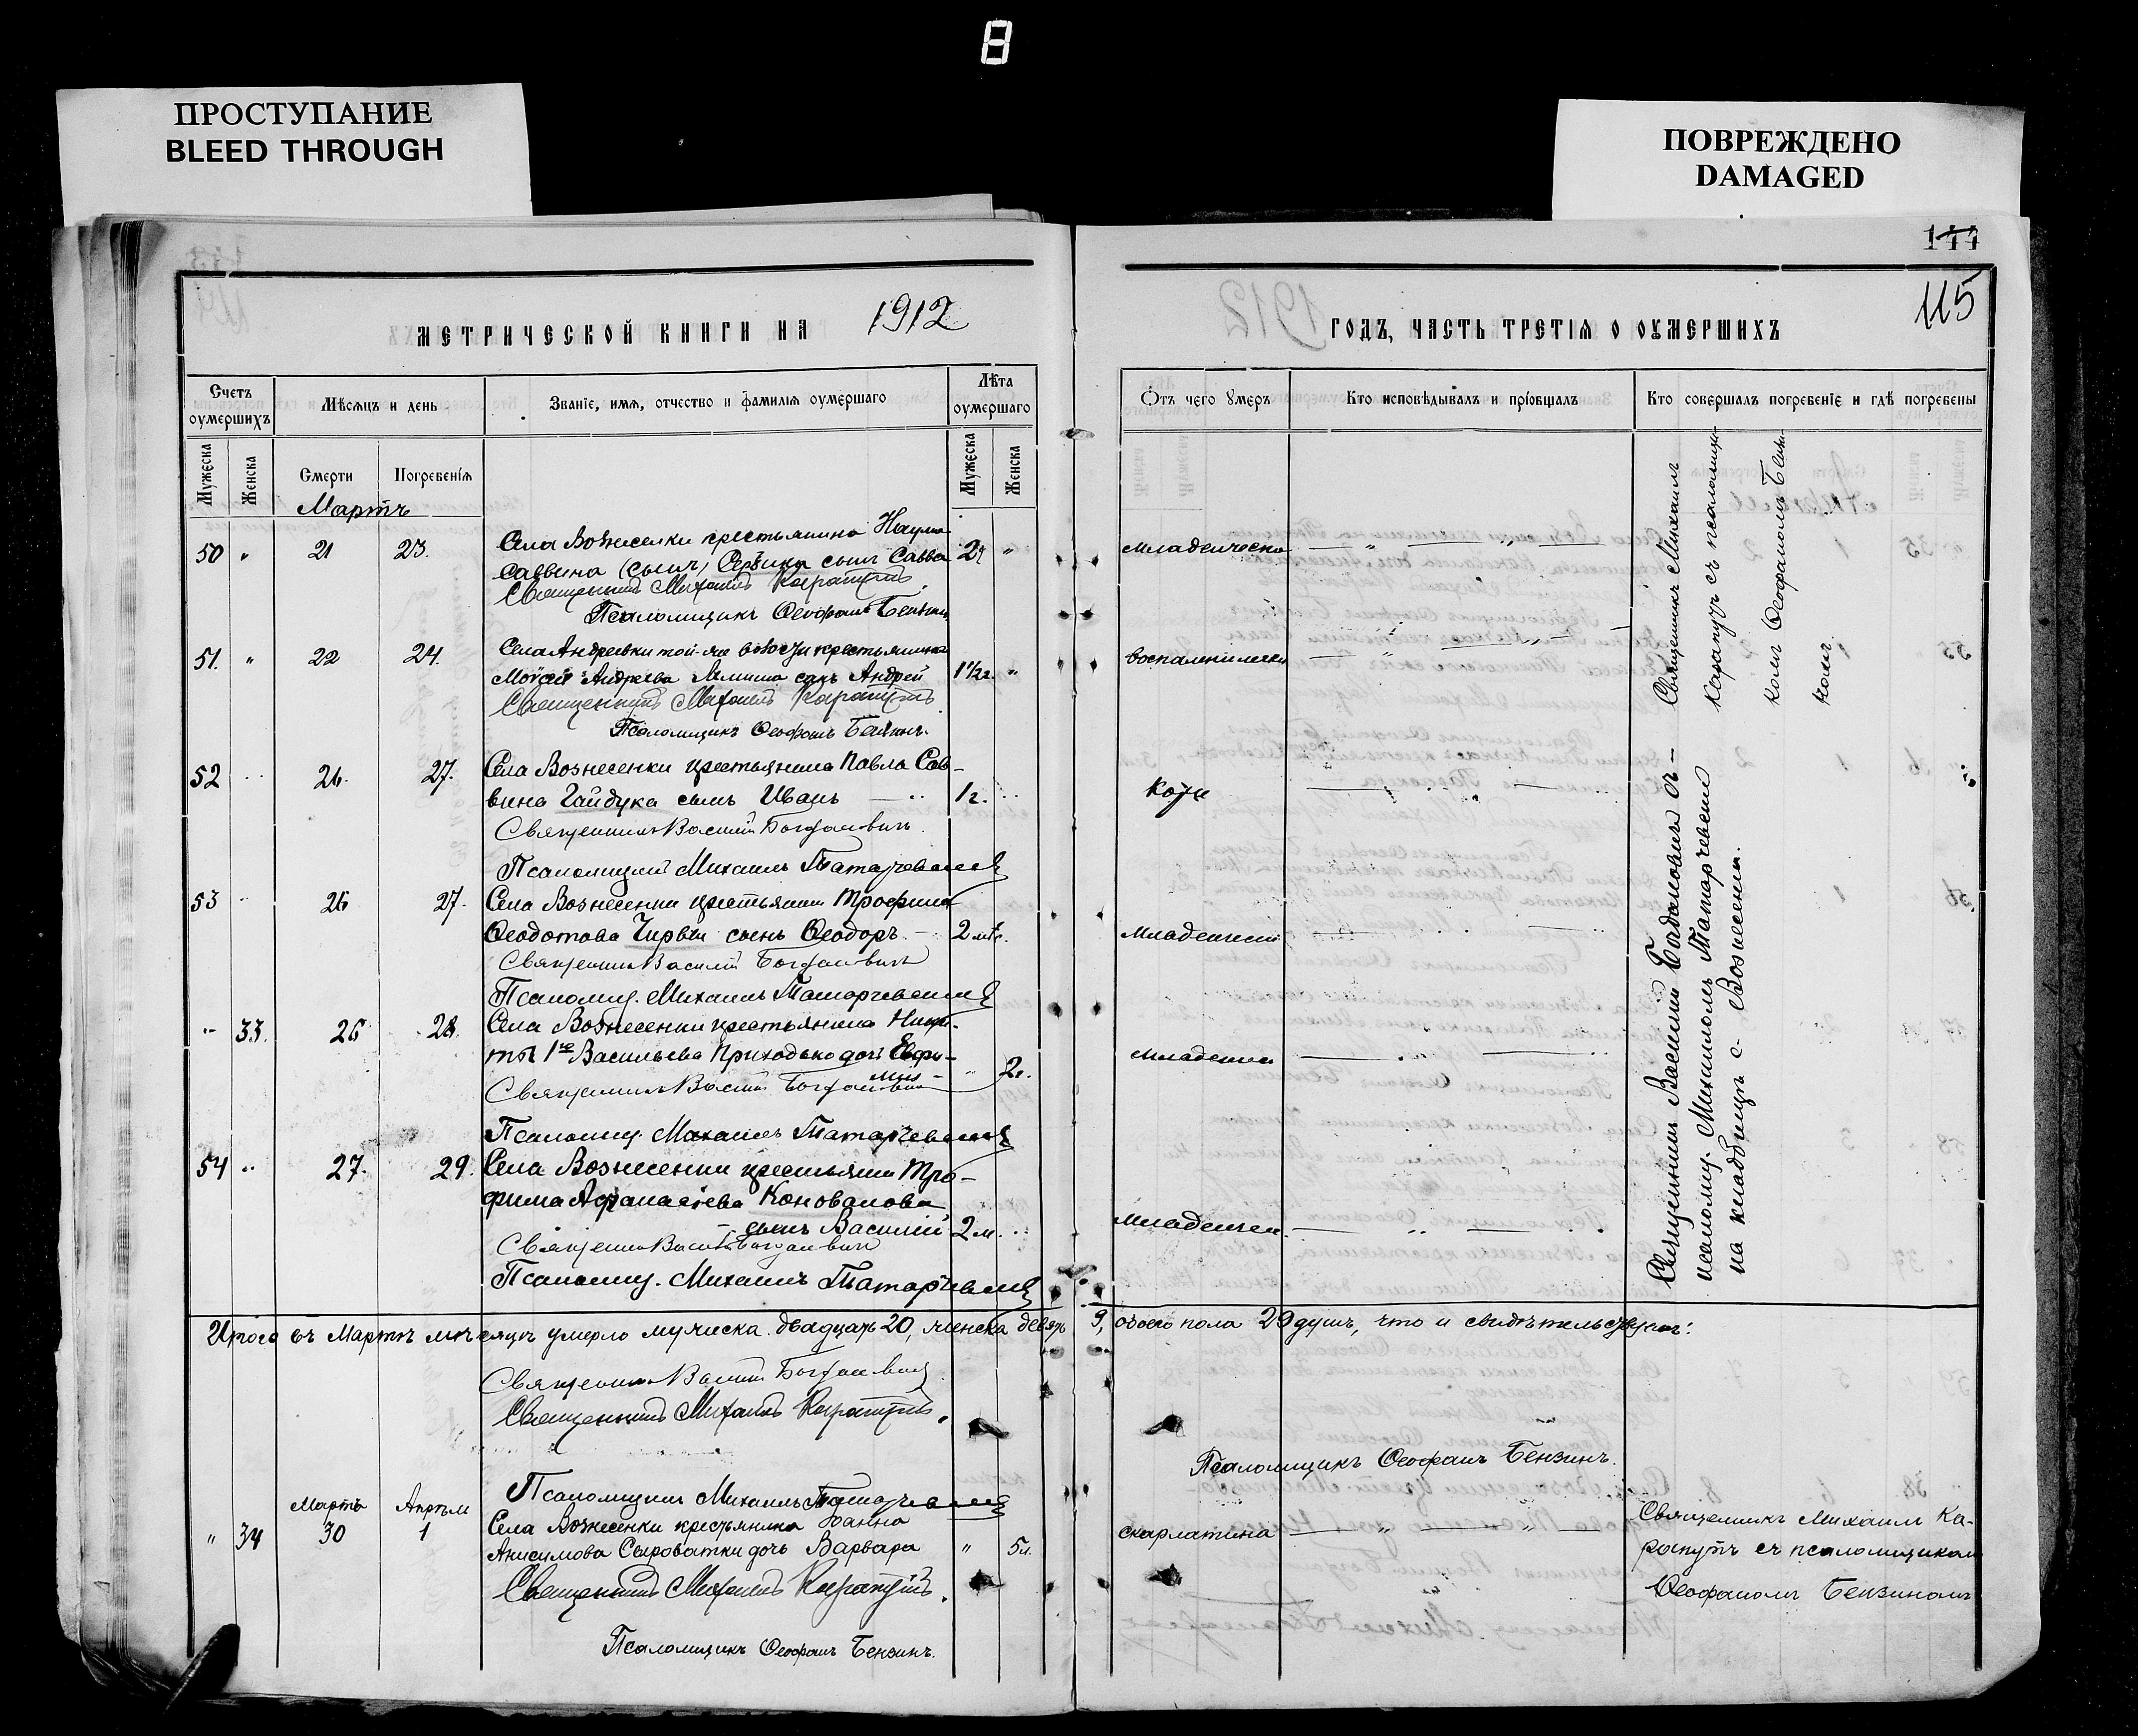 8
ПРОСТУПАНИЕ
BLEED THROUGH
ПОВРЕЖДЕНО
DAMAGED
144
115
МЕТРИЧЕСКОЙ КНИГИ НА 1912
ГОДЪ, ЧАСТЬ ТРЕТІЯ О ОУМЕРШИХЪ
Счетъ оумершихъ
Мѣсяцъ и день
Званіе, имя, отчество и фамилія оумершаго
Лѣта оумершаго
Отъ чего умеръ
Кто исповѣдывалъ и пріобщалъ
Кто совершалъ погребеніе и гдѣ погребены
Мужеска
Женска
Смерти
Погребенія
Мужеска
Женска
Мартъ
50 " 21 23.
Села Вознесенки крестьянина Наума
Саввина (сынъ) сынъ Савва 2г "
Священникъ Михаилъ Карапутъ
Псаломщикъ Ѳеофанъ Бензинъ
младенческ
51. " 22 24.
Села Андреевки той-же волости крестьянина
Моисея Андреева сынъ Андрей 1½г. "
Священникъ Михаилъ Карапутъ
Псаломщикъ Ѳеофанъ Бензинъ.
воспален легких
Священникъ Михаилъ
Карапутъ съ псаломщи-
комъ Ѳеофаномъ Бензи-
номъ.
52 26. 27.
Села Вознесенки крестьянина Павла Сав-
вина Гайдука сынъ Иванъ 1г.
Священникъ Василій Богдановичъ
Псаломщикъ Михаилъ Татарчевскій
Кори
53 26 27.
Села Вознесенки крестьянин Трофима
Ѳеодотова сынъ Ѳеодоръ 2 лѣт.
Священникъ Василій Богдановичъ
Псаломщ. Михаилъ Татарчевскій
Младенческ
33. 26 28.
Села Вознесенки крестьянина Ники-
ты 1го Васильева Приходько дочь Евфи-
мія 2г.
Священникъ Василій Богдановичъ
Псаломщ. Михаилъ Татарчевскій
младенческ
54 27. 29.
Села Вознесенки крестьянин Тро-
фима Аѳанасіева Коновалова
сынъ Василій 2 м.
Священникъ Василій Богдановичъ
Псаломщ. Михаилъ Татарчевскій
младенческ.
Священникъ Василій Богдановичъ съ
псаломщ. Михаиломъ Татарчевскимъ
на кладбищѣ с. Вознесенки.
Итого въ Мартѣ мѣсяцѣ умерло мужеска двадцать 20, женска девять 9, обоего пола 29 душъ, что и свидѣтельствуемъ:
Священникъ Василій Богдановичъ
Священникъ Михаилъ Карапутъ.
Псаломщикъ Ѳеофанъ Бензинъ.
Псаломщикъ Михаилъ Татарчевскій
Мартъ Апрѣля
" 34 30 1
Села Вознесенки крестьянина Іоанна
Анисимова Сыроватки дочь Варвара " 5л.
Священникъ Михаилъ Карапутъ.
Псаломщикъ Ѳеофанъ Бензинъ.
скарлатина
Священникъ Михаилъ Ка-
рапутъ съ псаломщикомъ
Ѳеофаномъ Бензиномъ